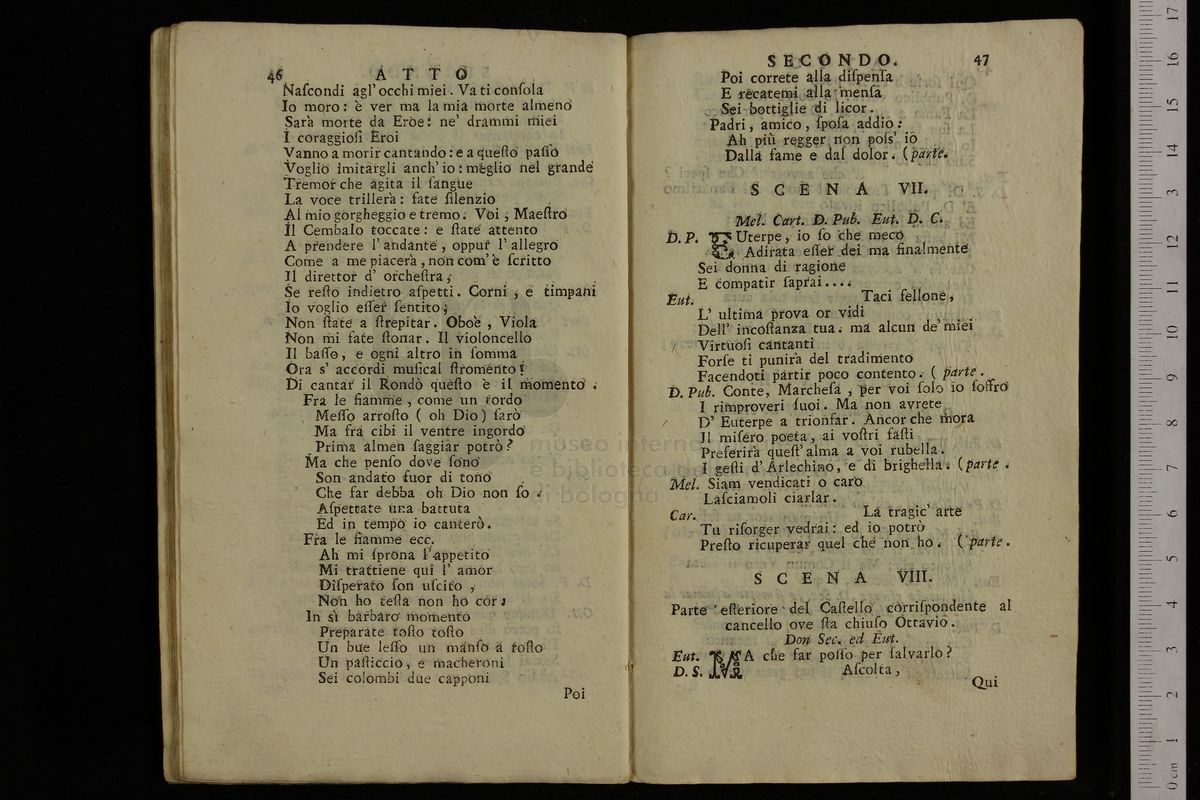 46 ATTO
Naſcondi agl'occhi miei. Va ti conſola
Io moro: è ver ma la mia morte almeno
Sarà morte da Eroe: ne' drammi miei
I coraggioſi Eroi
Vanno a morir cantando: e a queſto paſſo
Voglio imitargli anch'io: meglio nel grande
Tremor che agita il ſangue
La voce trillerà: fate ſilenzio
Al mio gorgheggio e tremo. Voi, Maeſtro
Il Cembalo toccate: e ſtate attento
A prendere l'andante, oppur l'allegro
Come a me piacerà, non com'è ſcritto
Il direttor d'orcheſtra,
Se reſto indietro aſpetti. Corni, e timpani
Io voglio eſſer ſentito;
Non ſtate a ſtrepitar. Oboè, Viola
Non mi fate ſtonar. Il violoncello
Il baſſo, e ogni altro in ſomma
Ora s'accordi muſical ſtromento:
Di cantar il Rondò queſto è il momento.
Fra le fiamme, come un tordo
Meſſo arroſto (oh Dio) ſarò
Ma fra cibi il ventre ingordo
Prima almen ſaggiar potrò?
Ma che penſo dove ſono
Son andato fuor di tono
Che far debba oh Dio non ſo.
Aſpettate una battuta
Ed in tempo io canterò.
Fra le fiamme ecc.
Ah mi ſprona l'appetito
Mi trattiene quì l'amor
Diſperato ſon uſcito,
Non ho teſta non ho cor:
In sì barbaro momento
Preparate toſto toſto
Un bue leſſo un manſo a roſto
Un paſticcio, e macheroni
Sei colombi due capponi
Poi
SECONDO. 47
Poi correte alla diſpenſa
E recatemi alla menſa
Sei bottiglie di licor.
Padri, amico, ſpoſa addio:
Ah più regger non poſs'io
Dalla fame e dal dolor. (parte.
SCENA VII.
Mel. Cart. D. Pub. Eut. D. C.
D. P. EUterpe, io ſo che meco
Adirata eſſer dei ma finalmente
Sei donna di ragione
E compatir ſaprai....
Eut. Taci fellone,
L'ultima prova or vidi
Dell'incoſtanza tua. ma alcun de'miei
Virtuoſi cantanti
Forſe ti punirà del tradimento
Facendoti partir poco contento. (parte.
D. Pub. Conte, Marcheſa, per voi ſolo io ſoffro
I rimproveri ſuoi. Ma non avrete
D'Euterpe a trionfar. Ancor che mora
Il miſero poeta, ai voſtri faſti
Preferirà queſt'alma a voi rubella.
I geſti d'Arlechino, e di brighella. (parte.
Mel. Siam vendicati o caro
Laſciamoli ciarlar.
Car. La tragic'arte
Tu riſorger vedrai: ed io potrò
Preſto ricuperar quel che non ho. (parte.
SCENA VIII.
Parte eſteriore del Caſtello corriſpondente al
cancello ove ſta chiuſo Ottavio.
Don Sec. ed Eut.
Eut. MA che far poſſo per ſalvarlo?
D. S. Aſcolta,
Qui
museo interna
e biblioteca de
di bologna
0 cm 1 2 3 4 5 6 7 8 9 10 11 12 13 14 15 16 17